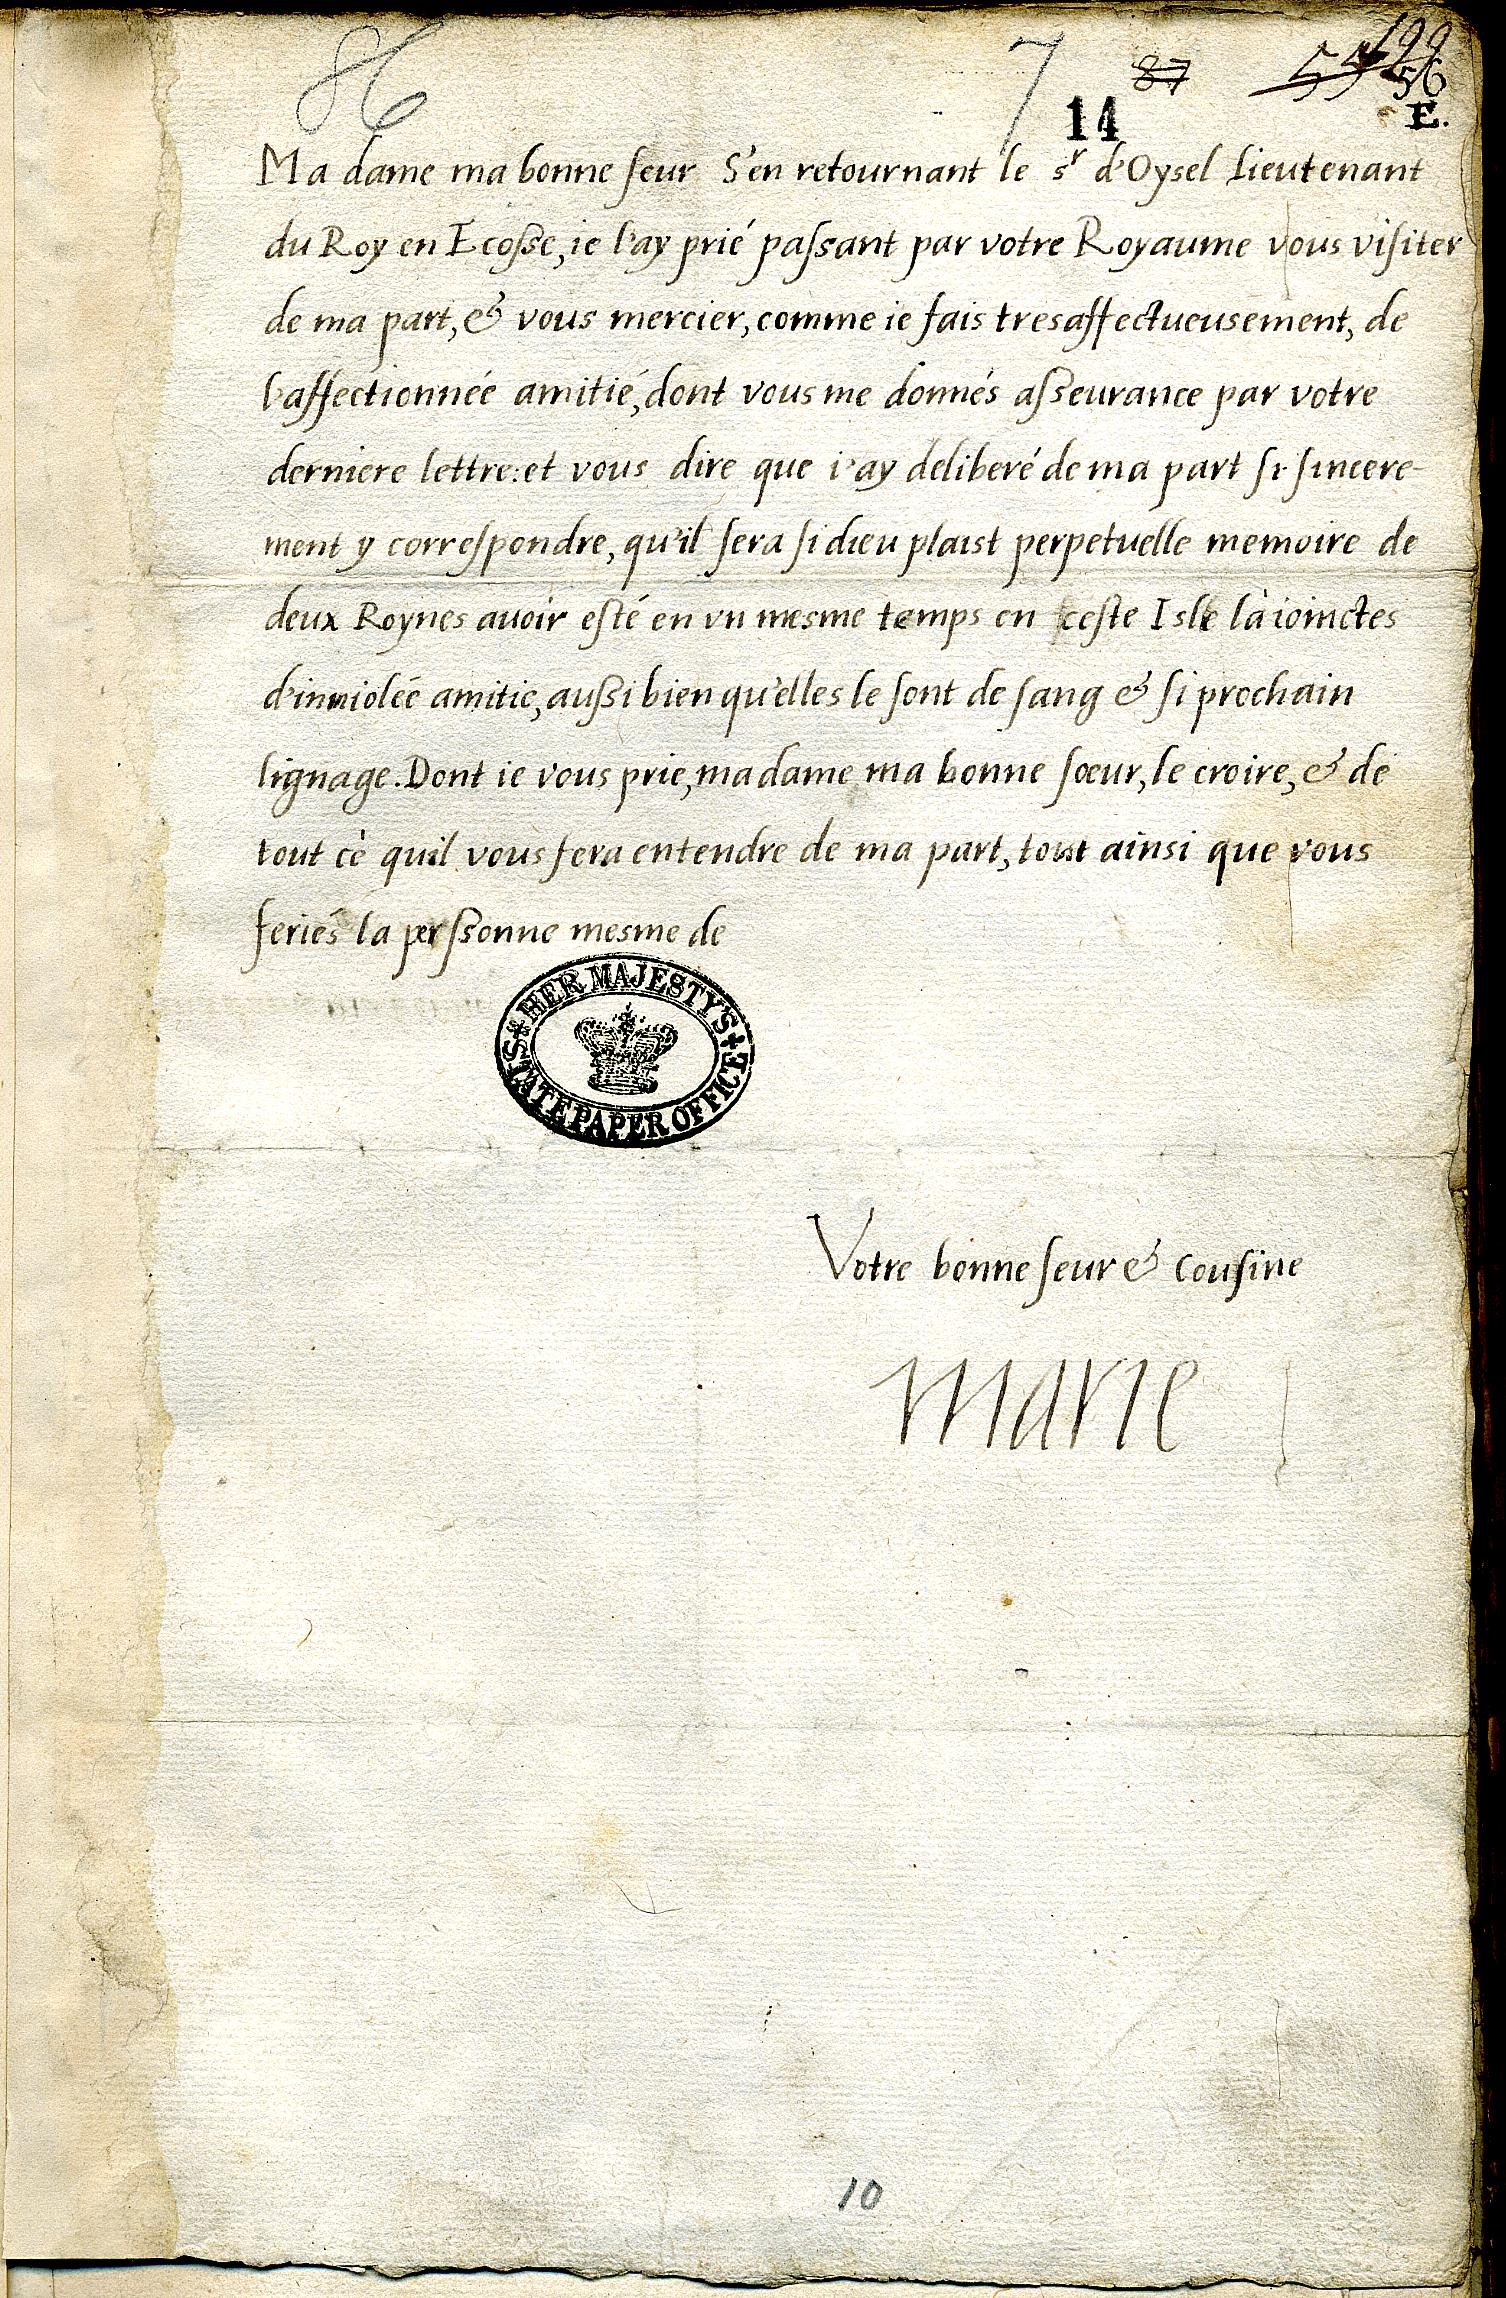 86
7
87
14
55
199
56
E.
Ma dame ma bonne seur S'en retournant le sr d'Oysel Lieutenant
du Roy en Ecosse, ie l'ay prié passant par votre Royaume vous visiter
de ma part, & vous mercier, comme ie fais tresaffectueusement, de
l'affectionnée amitié, dont vous me donnés asseurance par votre
derniere lettre: et vous dire que i'ay deliberé de ma part si sincere-
ment y correspondre, qu'il sera si dieu plaist perpetuelle memoire de
deux Roynes auoir esté en vn mesme temps en ceste Isle là ioinctes
d'inuiolée amitie, aussi bien qu'elles le sont de sang & si prochain
lignage. Dont ie vous prie, madame ma bonne sœur, le croire, & de
tout cè quil vous fera entendre de ma part, tout ainsi que vous
feriés la perssonne mesme de
HER MAJESTY'S
STATE PAPER OFFICE
Votre bonne seur & cousine
Marie
10